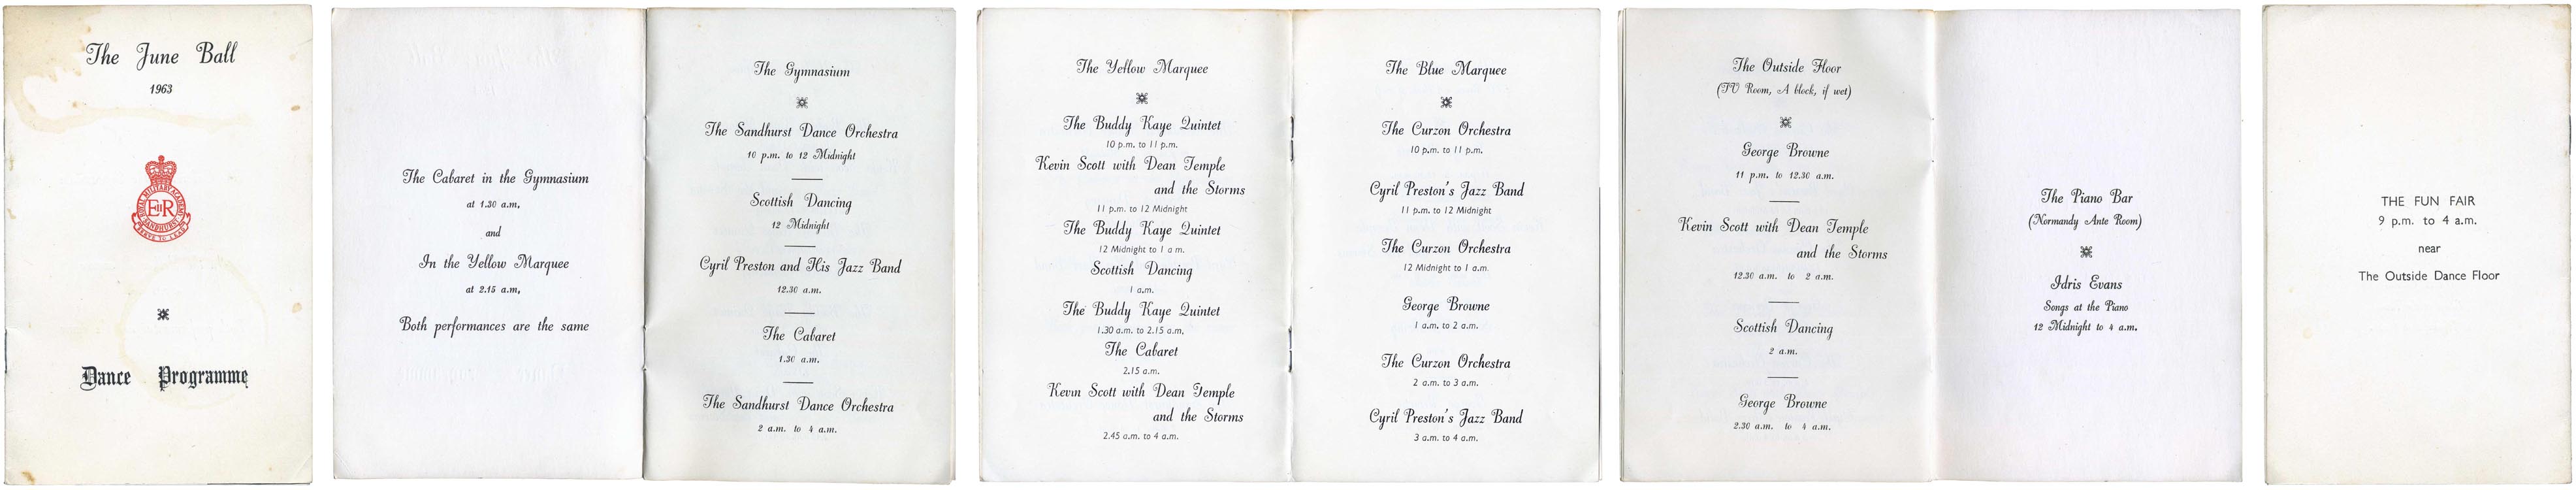 The June Ball
1963
ROYAL MILITARY ACADEMY
EIIR
SANDHURST
SERVE TO LEAD
Dance Programme
The Cabaret in the Gymnasium
at 1.30 a.m.
and
In the Yellow Marquee
at 2.15 a.m.
Both performances are the same
The Gymnasium
The Sandhurst Dance Orchestra
10 p.m. to 12 Midnight
Scottish Dancing
12 Midnight
Cyril Preston and His Jazz Band
12.30 a.m.
The Cabaret
1.30 a.m.
The Sandhurst Dance Orchestra
2 a.m. to 4 a.m.
The Yellow Marquee
The Buddy Kaye Quintet
10 p.m. to 11 p.m.
Kevin Scott with Dean Temple
and the Storms
11 p.m. to 12 Midnight
The Buddy Kaye Quintet
12 Midnight to 1 a m.
Scottish Dancing
1 a.m.
The Buddy Kaye Quintet
1.30 a.m. to 2.15 a.m.
The Cabaret
2.15 a.m.
Kevin Scott with Dean Temple
and the Storms
2.45 a.m. to 4 a.m.
The Blue Marquee
The Curzon Orchestra
10 p.m. to 11 p.m.
Cyril Preston's Jazz Band
11 p.m. to 12 Midnight
The Curzon Orchestra
12 Midnight to 1 a.m.
George Browne
1 a.m. to 2 a.m.
The Curzon Orchestra
2 a.m. to 3 a.m.
Cyril Preston's Jazz Band
3 a.m. to 4 a.m.
The Outside Floor
(TV Room, A block, if wet)
George Browne
11 p.m. to 12.30 a.m.
Kevin Scott with Dean Temple
and the Storms
12.30 a.m. to 2 a.m.
Scottish Dancing
2 a.m.
George Browne
2.30 a.m. to 4 a.m.
The Piano Bar
(Normandy Ante Room)
Idris Evans
Songs at the Piano
12 Midnight to 4 a.m.
THE FUN FAIR
9 p.m. to 4 a.m.
near
The Outside Dance Floor